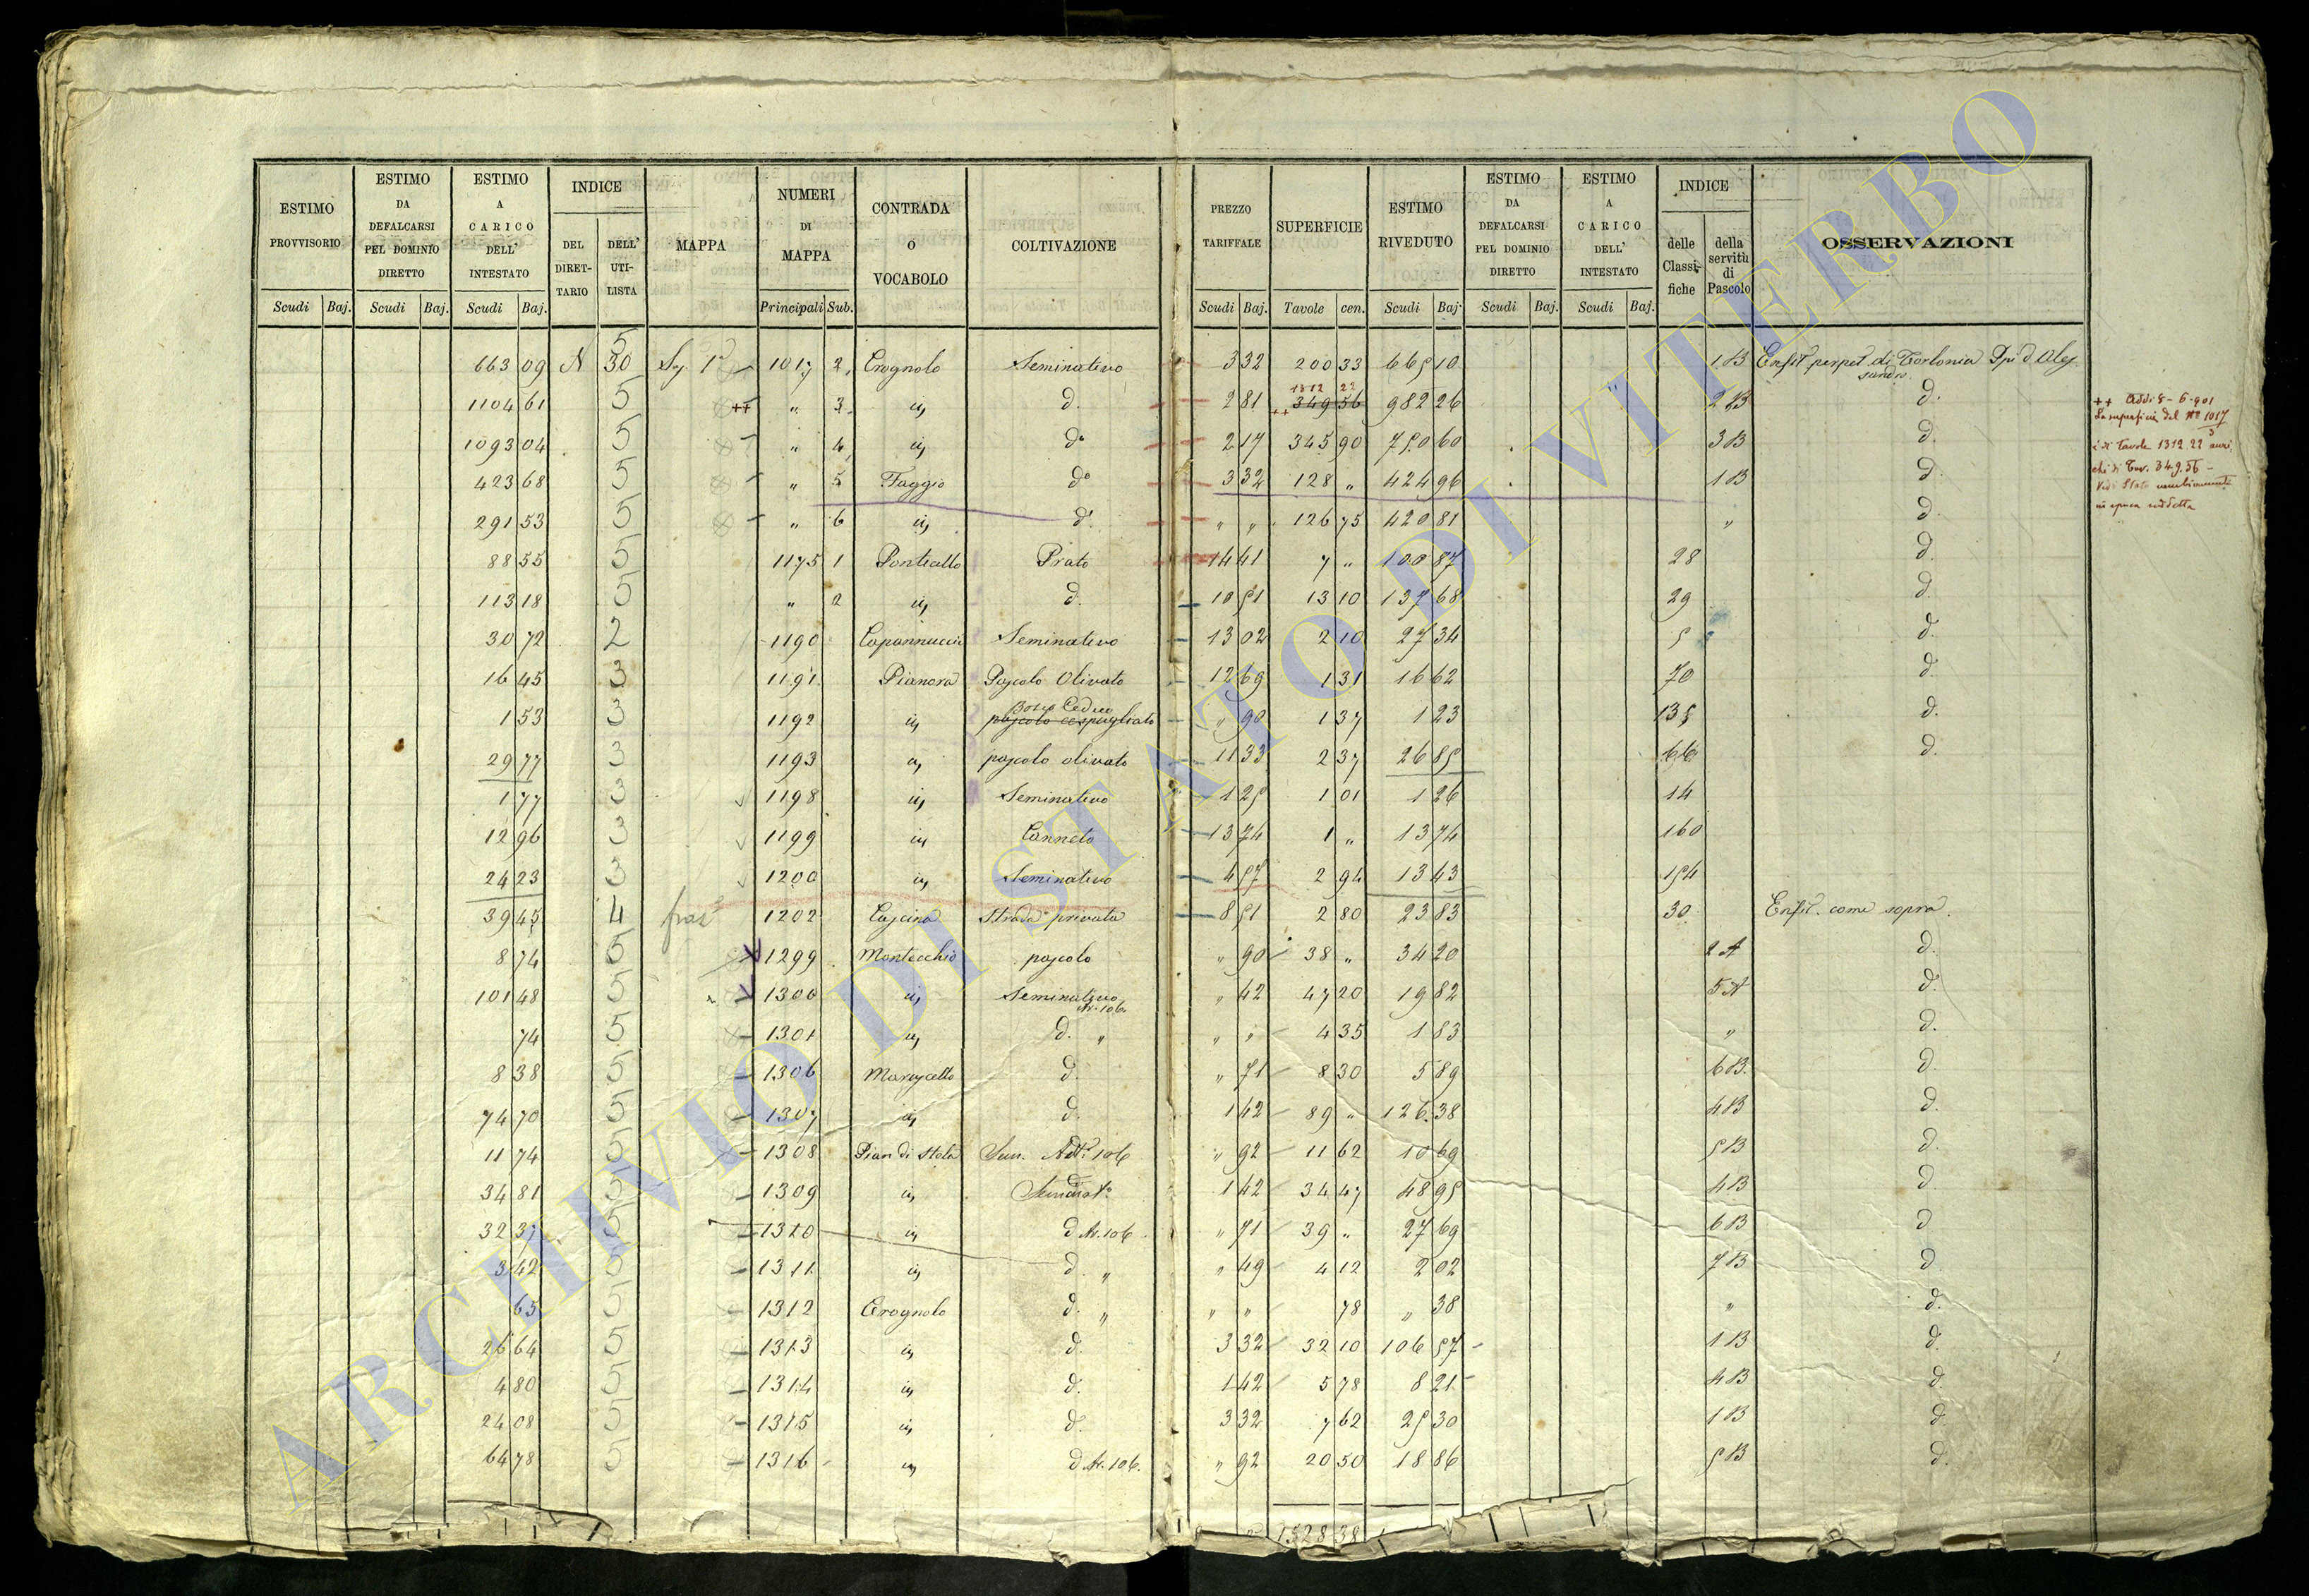 ESTIMO PROVVISORIO | ESTIMO DA DEFALCARSI PEL DOMINIO DIRETTO | ESTIMO A CARICO DELL' INTESTATO | INDICE DEL DIRETTARIO | DELL' UTILISTA | MAPPA | NUMERI DI MAPPA | CONTRADA O VOCABOLO | COLTIVAZIONE | PREZZO TARIFFALE | SUPERFICIE | ESTIMO RIVEDUTO | ESTIMO DA DEFALCARSI PEL DOMINIO DIRETTO | ESTIMO A CARICO DELL' INTESTATO | INDICE delle Classifiche | della servitù di Pascolo | OSSERVAZIONI
Scudi Baj. | Scudi Baj. | Scudi Baj. | Principali Sub. | Scudi Baj. | Tavole cen. | Scudi Baj. | Scudi Baj. | Scudi Baj.
663 09 N 5 30 1017 2 Crognolo Seminativo 3 32 200 33 665 10 1 B Enfit perpet. di Torlonia
1104 61 5 ++ " 3 d. 2 81 1312 22 ++ 349 56 982 26 2 B d.
1093 04 5 " 4 d° 2 17 345 90 750 60 3 B d.
423 68 5 " 5 Faggio d° 3 32 128 " 424 96 1 B d.
291 53 5 " 6 d° " " 126 75 420 81 " d.
88 55 5 1175 1 Ponticello Prato 14 41 7 " 100 87 28 d.
113 18 5 " 2 d. 10 51 13 10 137 68 29 d.
30 72 2 1190 Capannuccia Seminativo 13 02 2 10 27 34 5 d.
16 45 3 1191 Pianora Pascolo Olivato 12 69 1 31 16 62 70 d.
1 53 3 1192 Bosco Ceduo pascolo cespugliato " 90 1 37 1 23 135 d.
29 77 3 1193 pascolo olivato 11 33 2 37 26 85 66 d.
1 77 3 1198 Seminativo 1 25 1 01 1 26 14
12 96 3 1199 Canneto 13 74 1 " 13 74 160
24 23 3 1200 Seminativo 4 57 2 94 13 43 154
39 45 4 1202 Cascina Strada privata 8 51 2 80 23 83 30 Enfit. come sopra
8 74 5 1299 Montecchio pascolo " 90 38 " 34 20 2 A d.
101 48 5 1300 Seminativo Ar. 106 " 42 47 20 19 82 5 A d.
74 5 1301 d. " " " 4 35 1 83 " d.
8 38 5 1306 d. " 71 8 30 5 89 6 B. d.
74 70 5 1307 d. 1 42 89 " 126 38 4 B d.
11 74 5 1308 Pian di Stela Sem. 106 " 92 11 62 10 69 5 B d.
34 81 5 1309 1 42 34 47 48 95 4 B d
32 37 5 1310 d Ar. 106 " 71 39 " 27 69 6 B d
3 42 5 1311 d. " " 49 4 12 2 02 7 B d
65 5 1312 Crognolo d. " " " 78 " 38 " d.
26 64 5 1313 d. 3 32 32 10 106 57 1 B d.
4 80 5 1314 d. 1 42 5 78 8 21 4 B d
24 08 5 1315 d. 3 32 7 62 25 30 1 B d.
64 78 5 1316 d Ar. 106. " 92 20 50 18 86 5 B d.
1528 38
++ Addi 8-6-901
La superficie del N° 1017
3
è di Tavole 1312.22 anzi
chè di Tav. 349.56 -
Vedi Stato cambiamenti
in epoca suddetta
ARCHIVIO DI STATO DI VITERBO